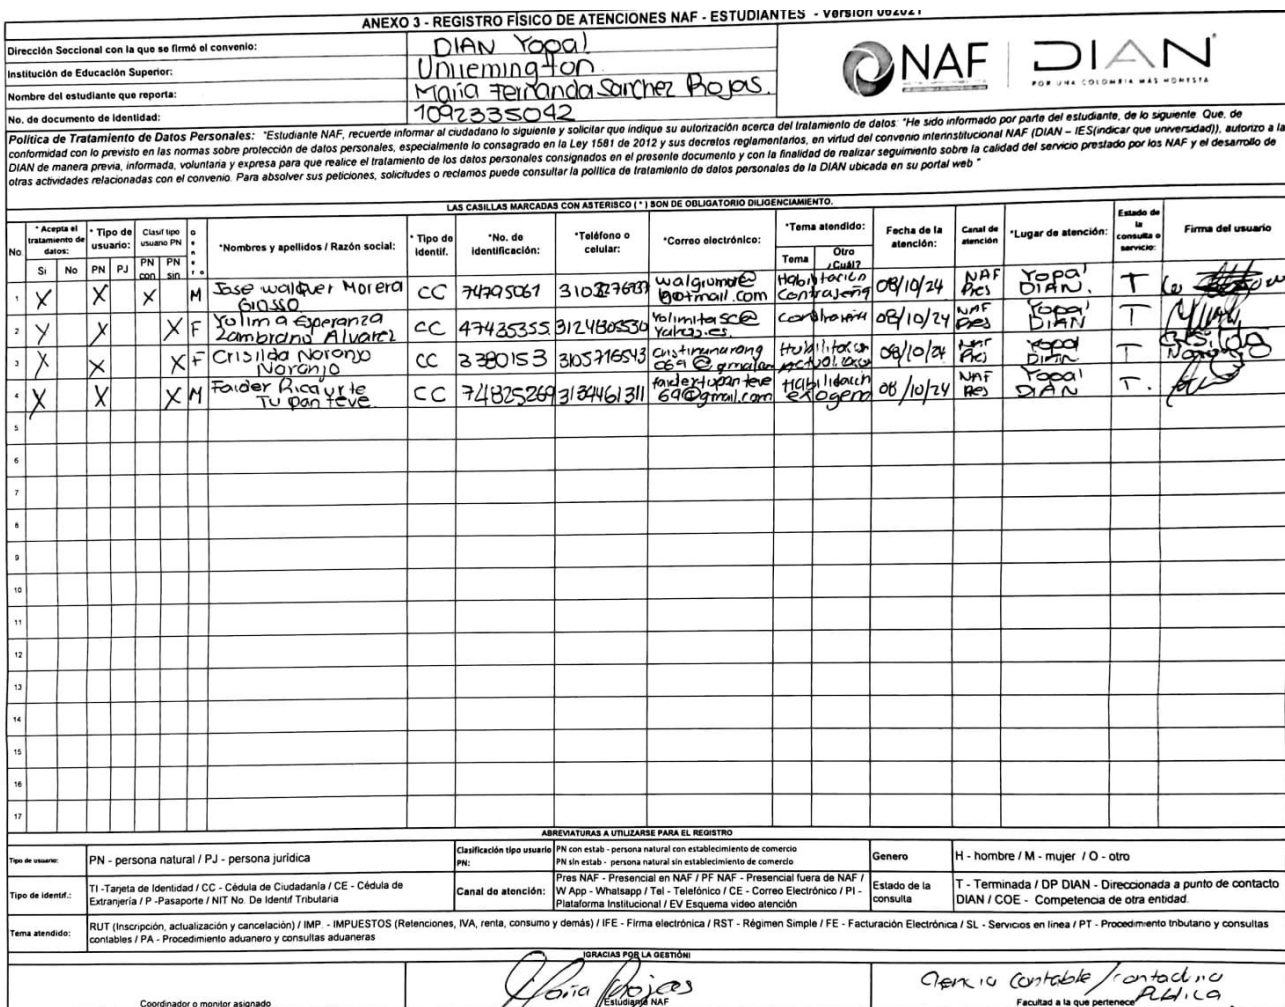 ANEXO 3 - REGISTRO FÍSICO DE ATENCIONES NAF - ESTUDIANTES - Versión 062021
Dirección Seccional con la que se firmó el convenio: DIAN Yopal
Institución de Educación Superior: Uniremington
Nombre del estudiante que reporta: Maria Fernanda Sanchez Rojas.
No. de documento de Identidad: 1092335042
NAF DIAN
POR UNA COLOMBIA MÁS HONESTA
Política de Tratamiento de Datos Personales: "Estudiante NAF, recuerde informar al ciudadano lo siguiente y solicitar que indique su autorización acerca del tratamiento de datos: "He sido informado por parte del estudiante, de lo siguiente: Que, de
conformidad con lo previsto en las normas sobre protección de datos personales, especialmente lo consagrado en la Ley 1581 de 2012 y sus decretos reglamentarios, en virtud del convenio interinstitucional NAF (DIAN – IES(indicar que universidad)), autorizo a la
DIAN de manera previa, informada, voluntaria y expresa para que realice el tratamiento de los datos personales consignados en el presente documento y con la finalidad de realizar seguimiento sobre la calidad del servicio prestado por los NAF y el desarrollo de
otras actividades relacionadas con el convenio. Para absolver sus peticiones, solicitudes o reclamos puede consultar la política de tratamiento de datos personales de la DIAN ubicada en su portal web "
LAS CASILLAS MARCADAS CON ASTERISCO ( * ) SON DE OBLIGATORIO DILIGENCIAMIENTO.
No * Acepta el tratamiento de datos: Si No * Tipo de usuario: PN PJ Clasif tipo usuario PN PN con PN sin Genero *Nombres y apellidos / Razón social: * Tipo de Identif. *No. de identificación: *Teléfono o celular: *Correo electrónico: *Tema atendido: Tema Otro ¿Cuál? Fecha de la atención: Canal de atención *Lugar de atención: Estado de la consulta o servicio: Firma del usuario
1 X X X M Jose walquer Morera Grosso CC 74795061 walgrumore@hotmail.com Habilitación Contraseña 08/10/24 NAF Pres Yopal DIAN. T
2 X X X F Yolima Esperanza Zambrano Alvarez CC 47435355 Yolimitasc@yahoo.es 08/10/24 NAF Pres Yopal DIAN T
3 X X X F Crisilda Naronjo Noronjo CC 3105716543 08/10/24 NAF Pres Yopal DIAN T Crisilda Naronjo
4 X X X M Faider Ricaurte Tupanteve CC 74825269 3134461311 faidertupanteve69@gmail.com exogena 08/10/24 NAF Pres Yopal DIAN T.
5
6
7
8
9
10
11
12
13
14
15
16
17
ABREVIATURAS A UTILIZARSE PARA EL REGISTRO
Tipo de usuario: PN - persona natural / PJ - persona jurídica
Clasificación tipo usuario PN: PN con estab - persona natural con establecimiento de comercio
PN sin estab - persona natural sin establecimiento de comercio
Genero H - hombre / M - mujer / O - otro
Tipo de identif.: TI -Tarjeta de Identidad / CC - Cédula de Ciudadanía / CE - Cédula de
Extranjería / P -Pasaporte / NIT No. De Identif Tributaria
Canal de atención: Pres NAF - Presencial en NAF / PF NAF - Presencial fuera de NAF /
W App - Whatsapp / Tel - Telefónico / CE - Correo Electrónico / PI -
Plataforma Institucional / EV Esquema video atención
Estado de la consulta T - Terminada / DP DIAN - Direccionada a punto de contacto
DIAN / COE - Competencia de otra entidad.
Tema atendido: RUT (Inscripción, actualización y cancelación) / IMP. - IMPUESTOS (Retenciones, IVA, renta, consumo y demás) / IFE - Firma electrónica / RST - Régimen Simple / FE - Facturación Electrónica / SL - Servicios en línea / PT - Procedimiento tributario y consultas
contables / PA - Procedimiento aduanero y consultas aduaneras
¡GRACIAS POR LA GESTIÓN!
Maria Rojas
Contable / contaduria Publica
Coordinador o monitor asignado
Estudiante NAF
Facultad a la que pertenece